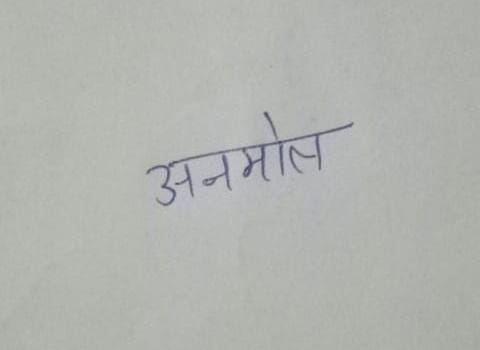 अनमोल